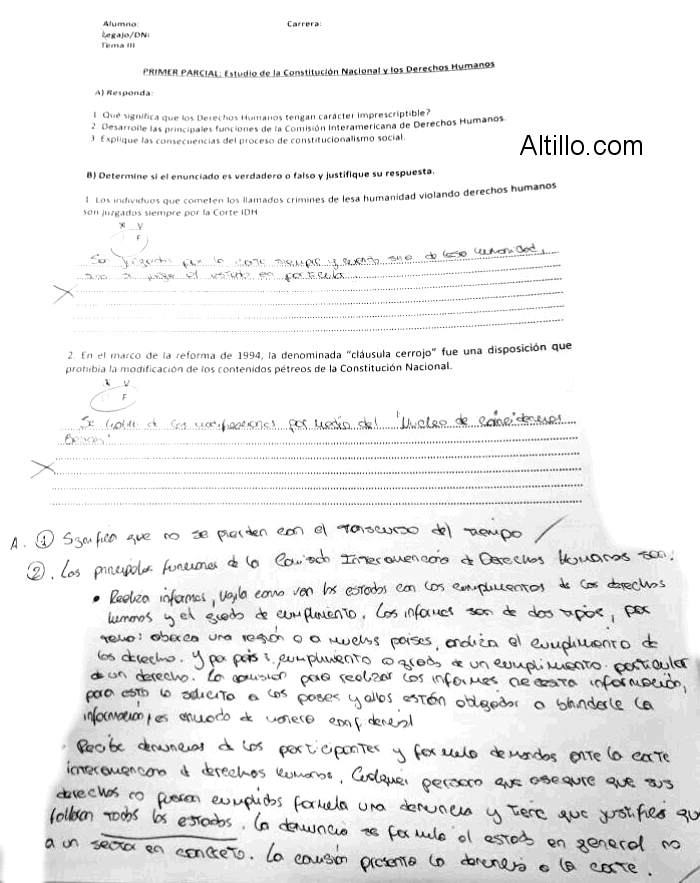 Alumno: Carrera:
Legajo/DNI
Tema III
PRIMER PARCIAL: Estudio de la Constitución Nacional y los Derechos Humanos
A) Responda:
1 Qué significa que los Derechos Humanos tengan carácter imprescriptible?
2. Desarrolle las principales funciones de la Comisión Interamericana de Derechos Humanos.
3 Explique las consecuencias del proceso de constitucionalismo social.
Altillo.com
B) Determine si el enunciado es verdadero o falso y justifique su respuesta.
1 Los individuos que cometen los llamados crimines de lesa humanidad violando derechos humanos
son juzgados siempre por la Corte IDH
V
F
por la corte siempre y cuando sea de lesa humanidad,
el estado en particular.
2. En el marco de la reforma de 1994, la denominada "cláusula cerrojo" fue una disposición que
prohibía la modificación de los contenidos pétreos de la Constitución Nacional.
V
F
Se de las modificaciones por medio del "Nucleo de coincidencias
Basicas"
A. ① Significa que no se pierden con el transcurso del tiempo
②. Las principales funciones de la Comisión Interamericana de Derechos Humanos son:
• Realiza informes, vigila como van los estados con los cumplimentos de los derechos
humanos y el grado de cumplimento. Los informes son de dos tipos, por
tema: abarca una región o a muchos paises, analiza el cumplimiento de
los derecho. Y por pais: cumplimiento o grado de un cumplimiento particular
de un derecho. La comision para realizar los informes necesita información,
para esto lo solicita a los paises y ellos están obligados a blindarle la
información, es enviado de manera confidencial
• Recibe denuncias de los participantes y formula demandas ante la corte
interamericana de derechos humanos. Cualquier persona que asegure que sus
derechos no fueron cumplidos formula una denuncia y tiene que justificar que
fallaron todos los estrados. La denuncia se formula al estado en general no
a un sector en concreto. La comisión presenta la denuncia a la corte.